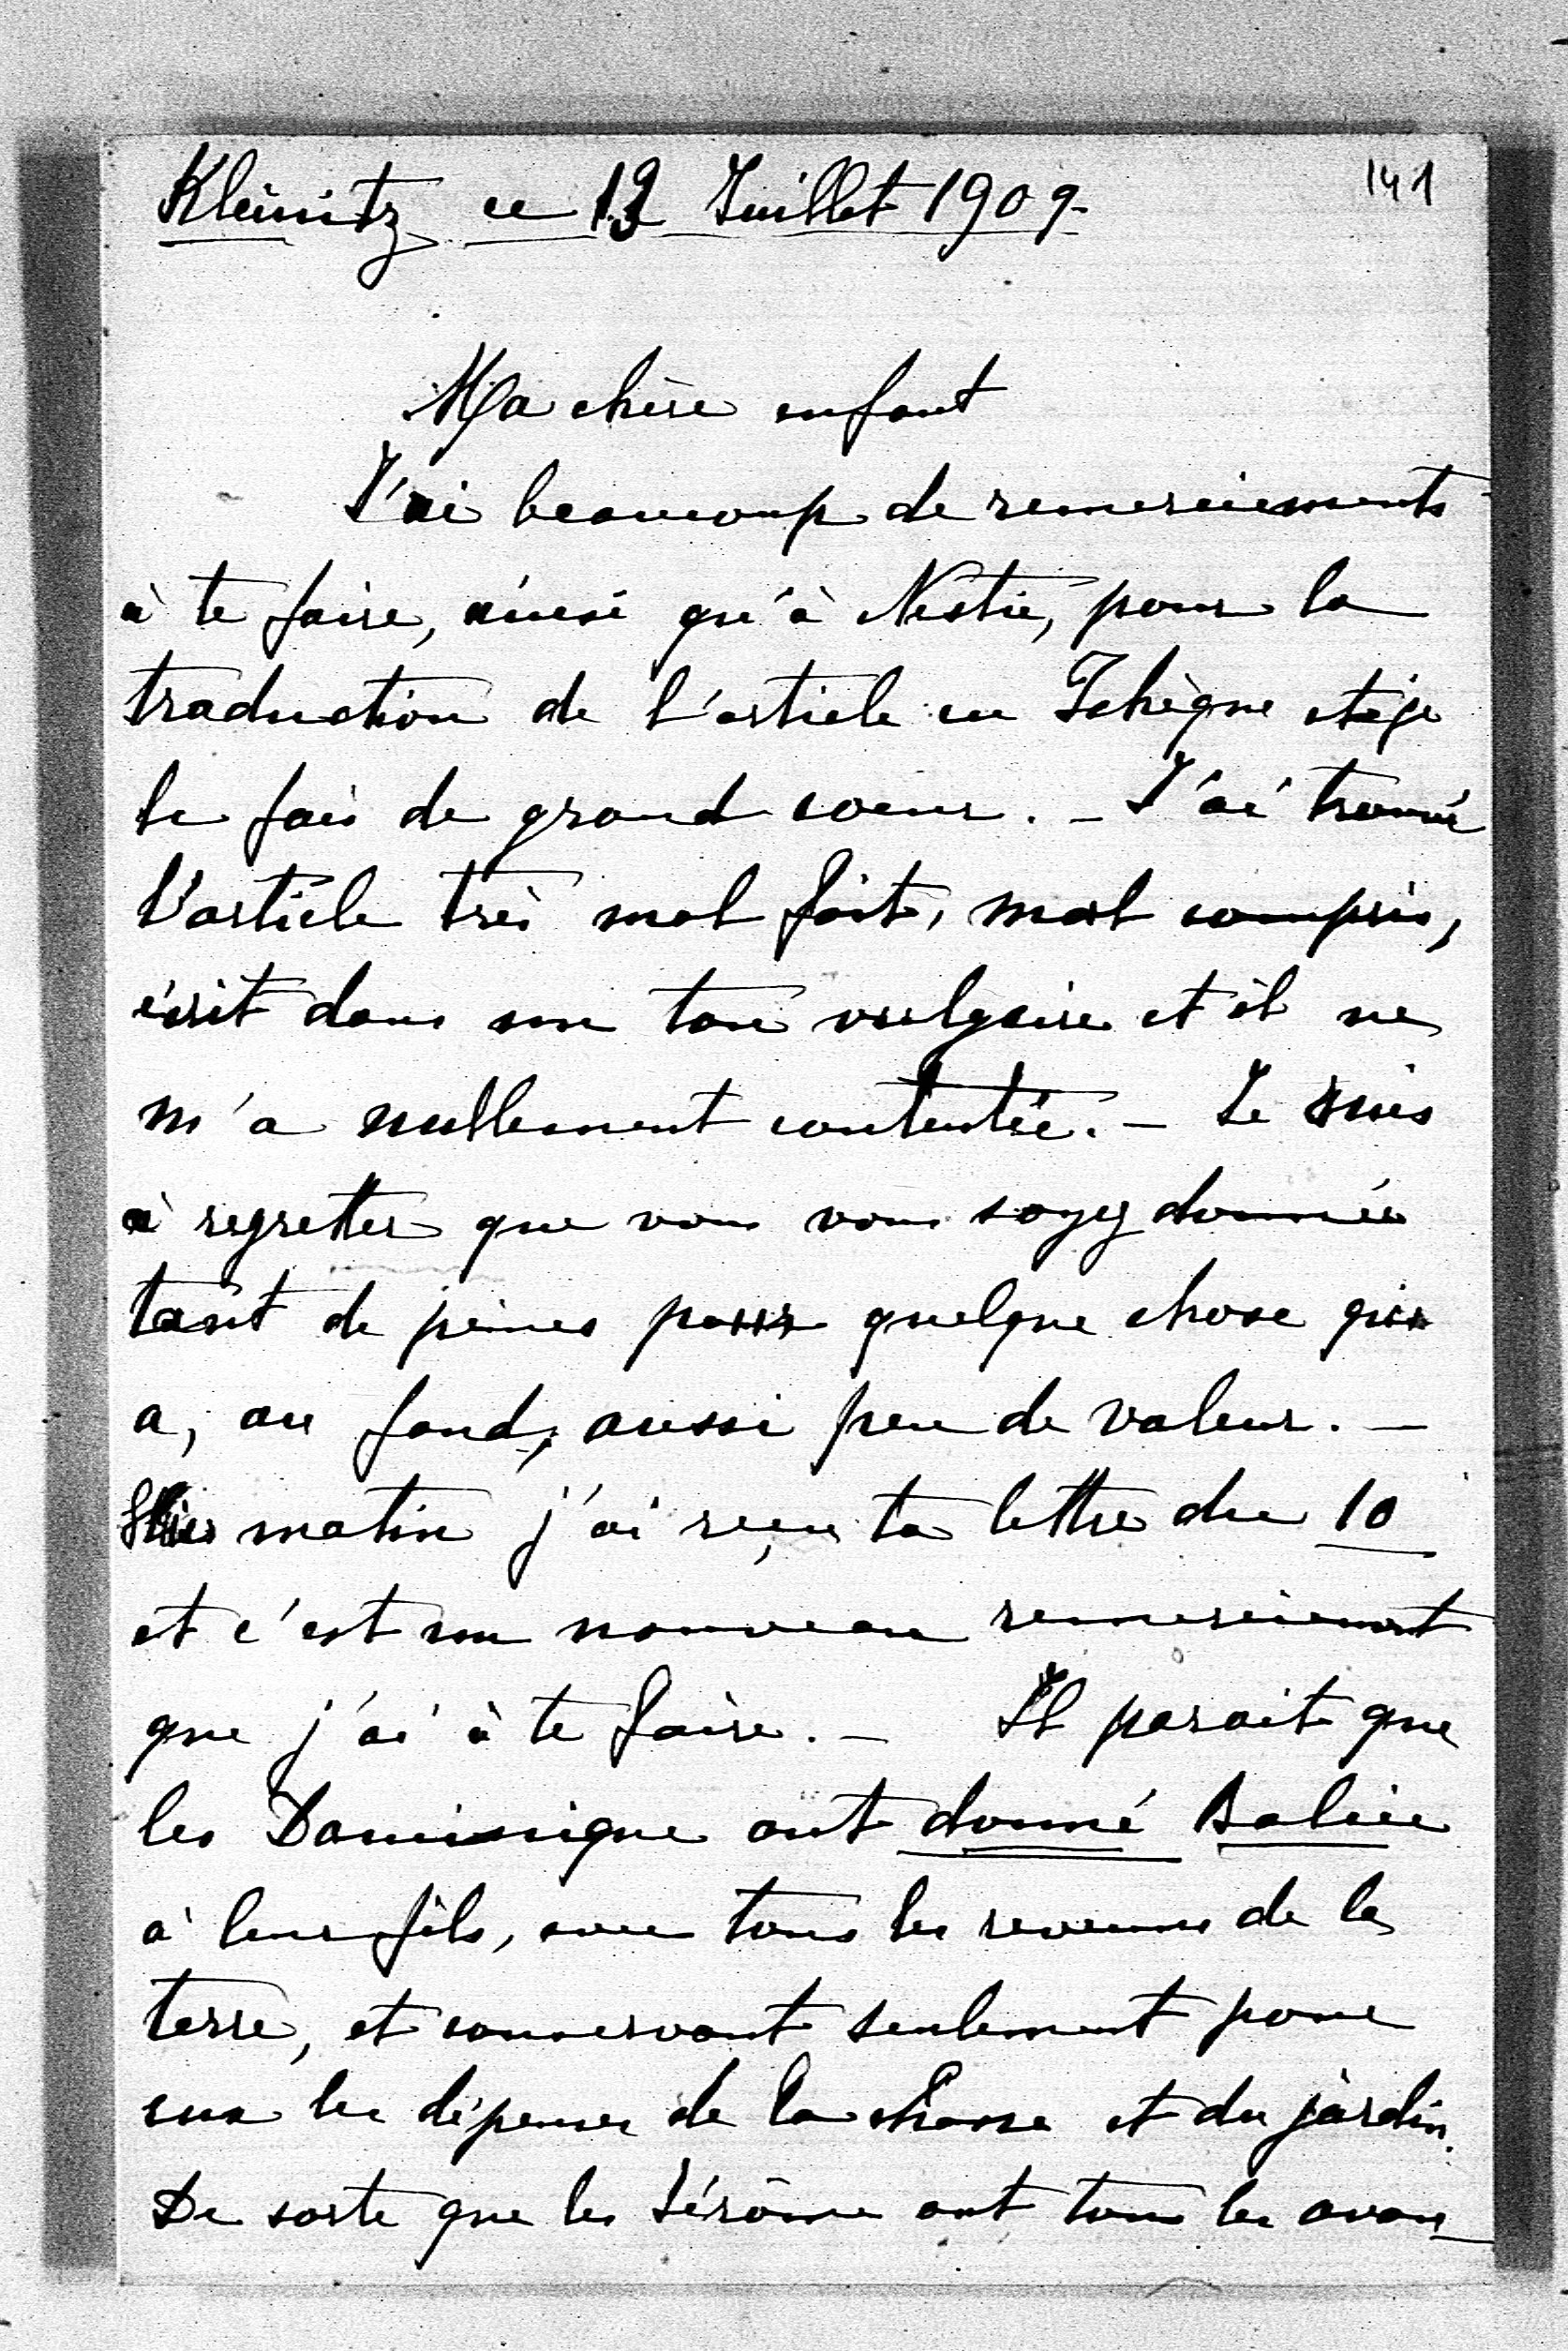 141
Kleinitz ce 13 Juillet 1909.
Ma chère enfant
J'ai beaucoup de remerciements
à te faire, ainsi qu'à Nestie, pour la
traduction de l'article en Tchèque et je
le fais de grand coeur. – J'ai trouvé
l'article très mal fait, mal compris,
écrit dans un ton vulgaire et il ne
m'a nullement contentée. – Je suis
à regretter que vous vous soyez donnée
tant de peines pour quelque chose qui
a, au fond, aussi peu de valeur. –
Hier matin j'ai reçu ta lettre du 10
et c'est un nouveau remerciement
que j'ai à te faire. – Il parait que
les Dominique ont donné Balice
à leur fils, avec tous les revenus de la
terre, et conservant seulement pour
eux les dépenses de la chasse et du jardin.
De sorte que les Jérôme ont tous les avan_